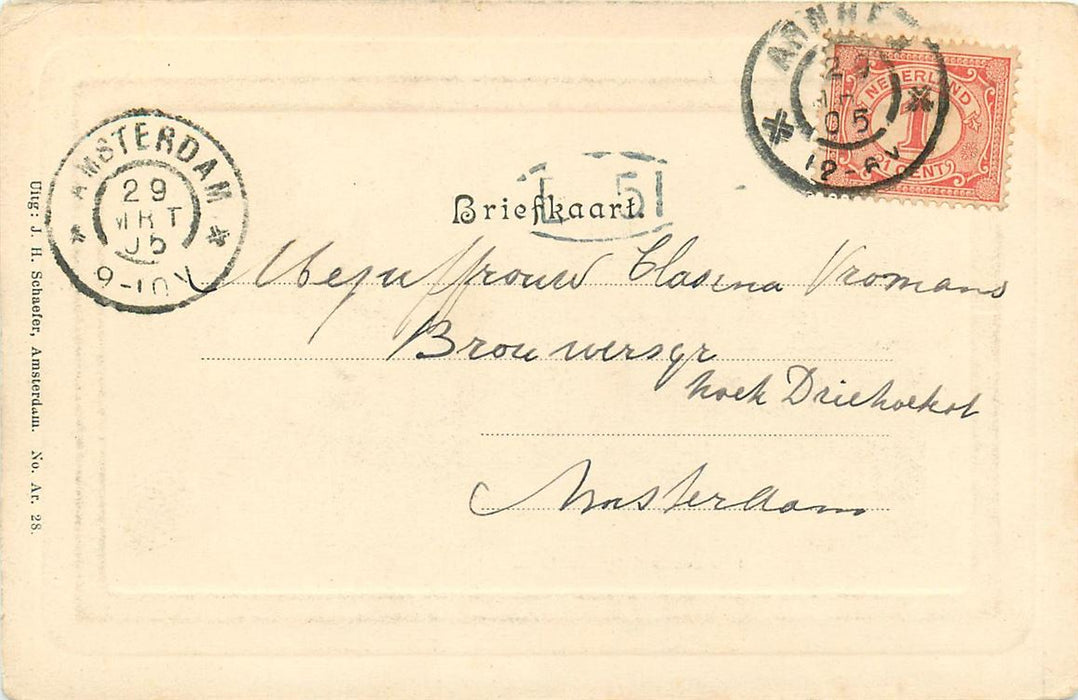 ARNHE
29
05
12-6V
NEDERLAND
1
1 CENT
AMSTERDAM
29
MRT
05
9-10V
L 51
Briefkaart.
Mejuffrouw Clasina Vromans
Brouwersgr
hoek Driehoekst
Amsterdam
Uitg: J. H. Schaefer, Amsterdam. No. Ar. 28.